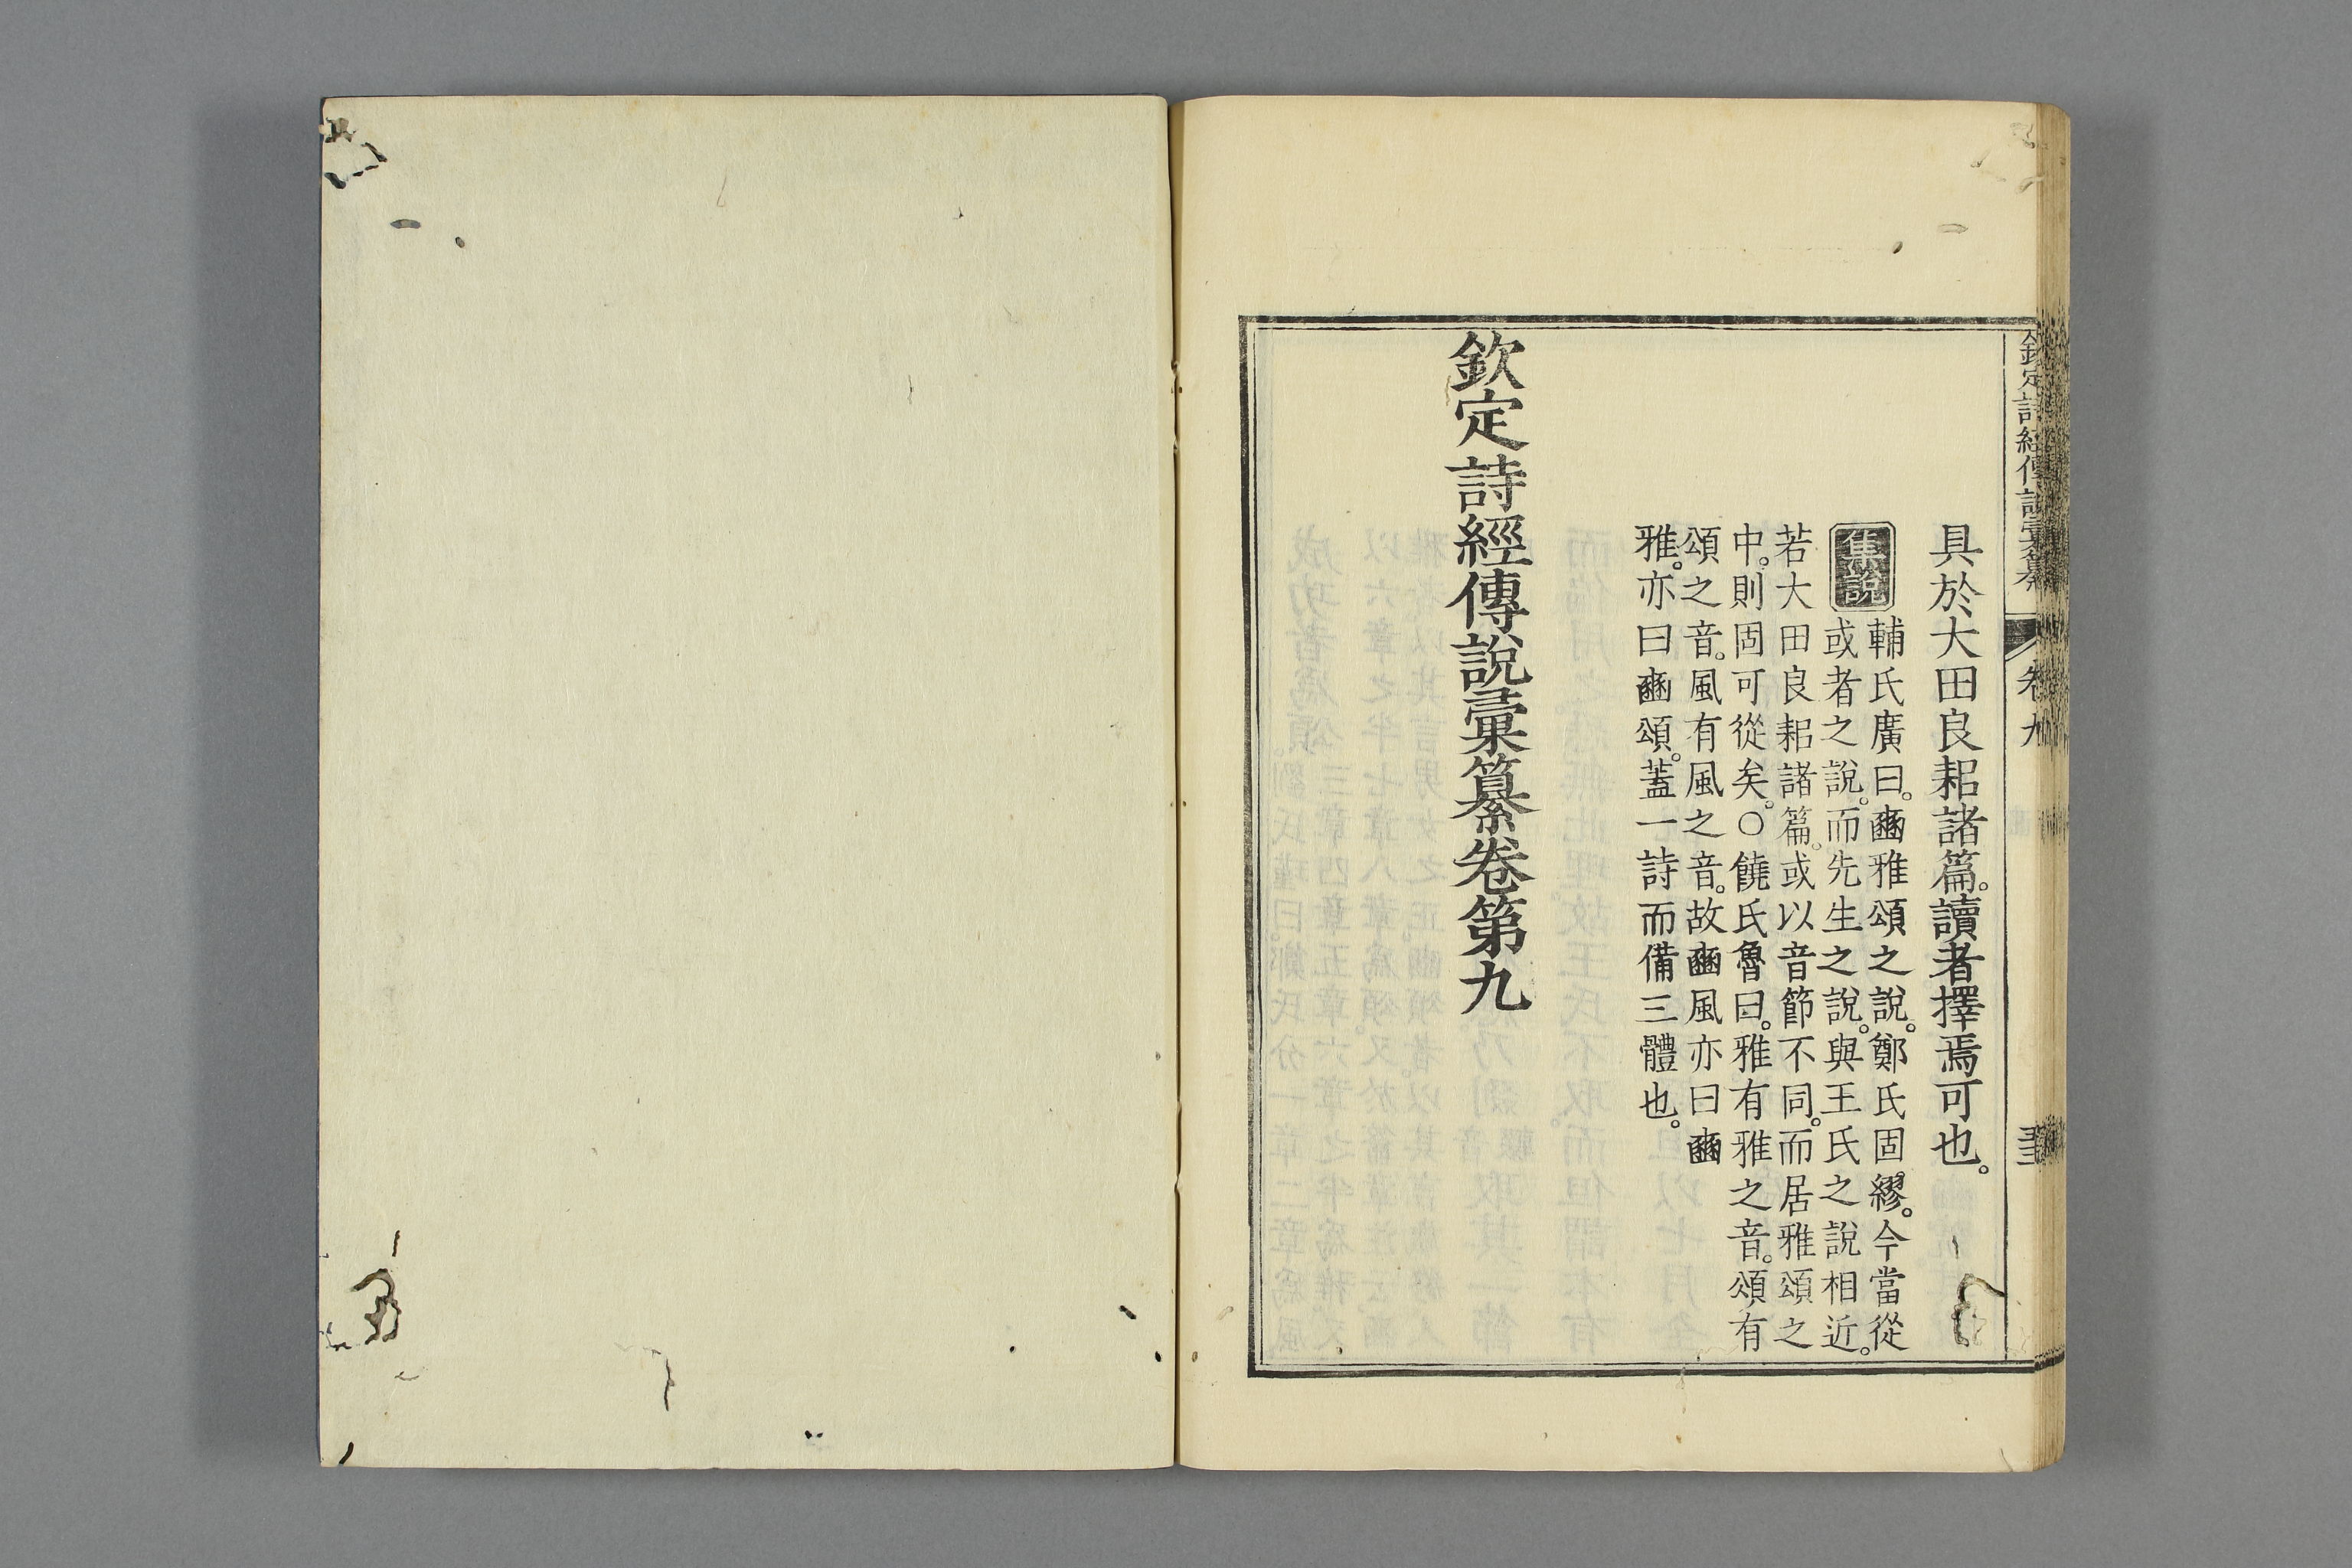 欽定詩經傳說彙纂 卷九
具於大田良耜諸篇。讀者擇焉可也。
集說
輔氏廣曰。豳雅頌之說。鄭氏固繆。今當從
或者之說。而先生之說。與王氏之說相近。
若大田良耜諸篇。或以音節不同。而居雅頌之
中。則固可從矣。〇饒氏魯曰。雅有雅之音。頌有
頌之音。風有風之音。故豳風亦曰豳
雅。亦曰豳頌。蓋一詩而備三體也。
欽定詩經傳說彙纂卷第九